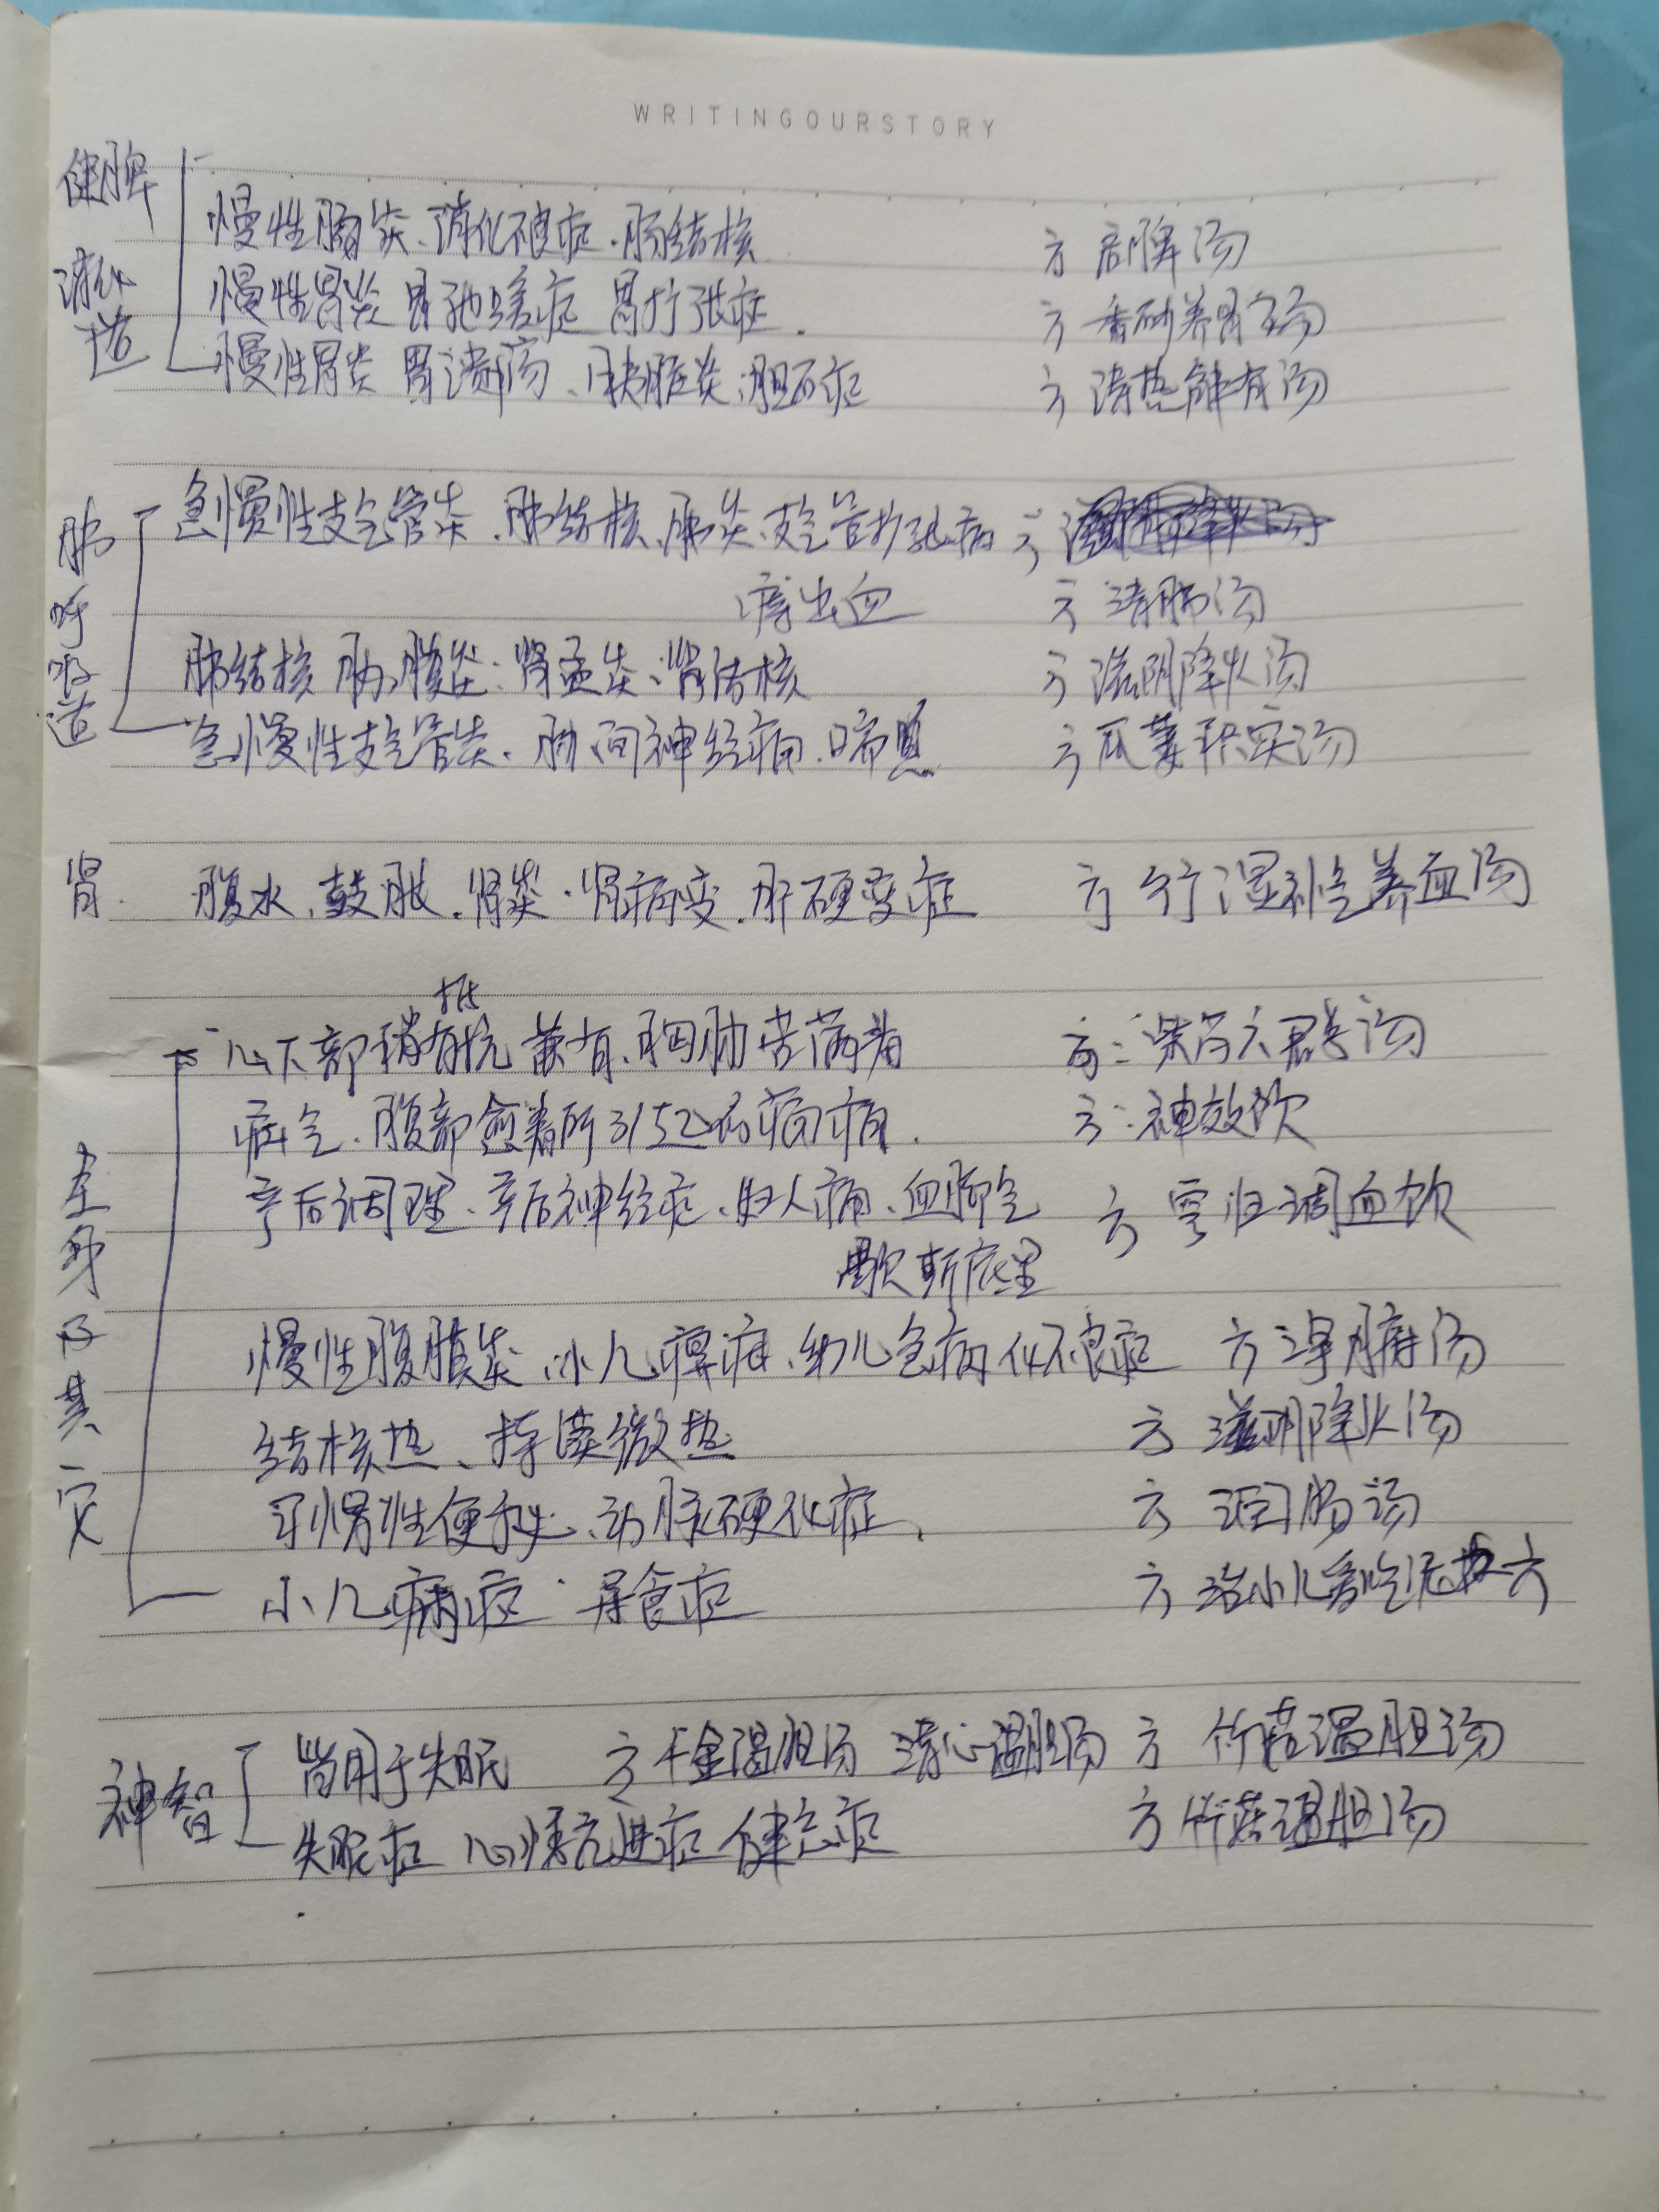 WRITINGOURSTORY
健脾
消化道
慢性肠炎、消化不良症、肠结核 方 启脾汤
慢性胃炎 胃弛缓症 胃扩张症. 方 香砂养胃汤
慢性胃炎 胃溃疡、胰脏炎、胆石症 方 清热解有汤
肺呼吸道
急慢性支气管炎、肺结核、肺炎、支气管扩张病 方
出血 方 清肺汤
肺结核 肋膜炎、肾盂炎、肾结核 方 滋阴降火汤
急慢性支气管炎、肋间神经痛、喘息 方 瓜蒌枳实汤
肾 腹水、鼓胀、肾炎、肾病变、肝硬变症 方 分行湿补气养血汤
抵
心下部稍有抗 兼有、胸肋苦满者 方:柴芍六君子汤
疝气、腹部 所引起的疼痛. 方:神效饮
全身及其它
产后调理、产后神经症、妇人病、血脚气 方 芎归调血饮
歇斯底里
慢性腹膜炎、小儿 、幼儿 化不良症 方 汤
结核热、持续微热 方 滋阴降火汤
习惯性便秘、动脉硬化症、 方 润肠汤
小儿 症 异食症 方 治小儿 吃泥 方
神智
常用于失眠 方 千金温胆汤 清心温胆汤 方 竹茹温胆汤
失眠症 心悸亢进症 健忘症 方 竹茹温胆汤